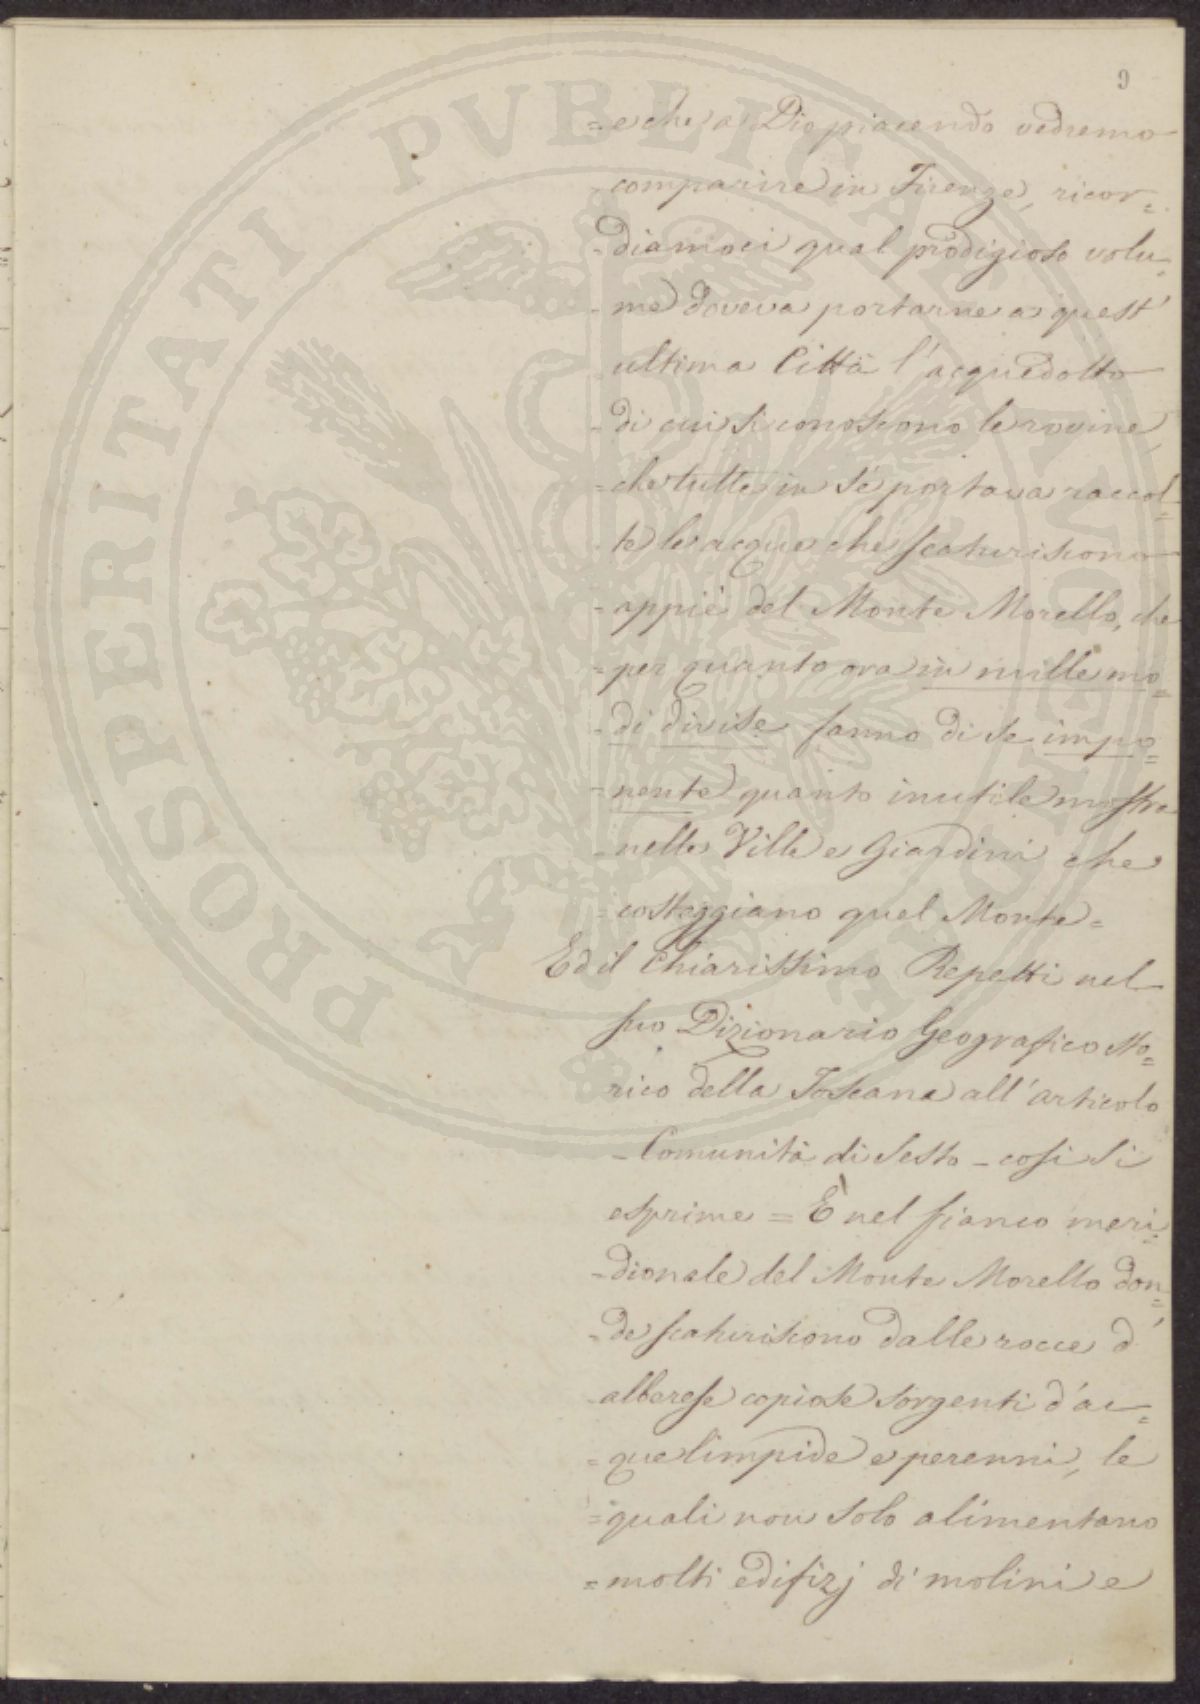 9
= e che a Dio piacendo vedremo
- comparire in Firenze, ricor=
- diamoci qual prodigioso volu=
- me doveva portarne a quest'
- ultima Città l'acquedotto
- di cui si conoscono le rovine,
= che tutte in sé portava raccol=
- te le acque che scaturiscono
- appiè del Monte Morello, che
= per quanto ora in mille mo=
- di divise fanno di se impo=
= nente quanto inutile mostra
- nelle Ville e Giardini che
= costeggiano quel Monte =
Ed il Chiarissimo Repetti nel
suo Dizionario Geografico Sto=
rico della Toscana all'articolo
- Comunità di Sesto - così si
esprime = È nel fianco meri=
- dionale del Monte Morello don=
- de scaturiscono dalle rocce d'
alberese copiose sorgenti d'ac=
= que limpide e perenni, le
= quali non solo alimentano
= molti edifizj di molini e
PROSPERITATI PVBLICAE AVGENDAE